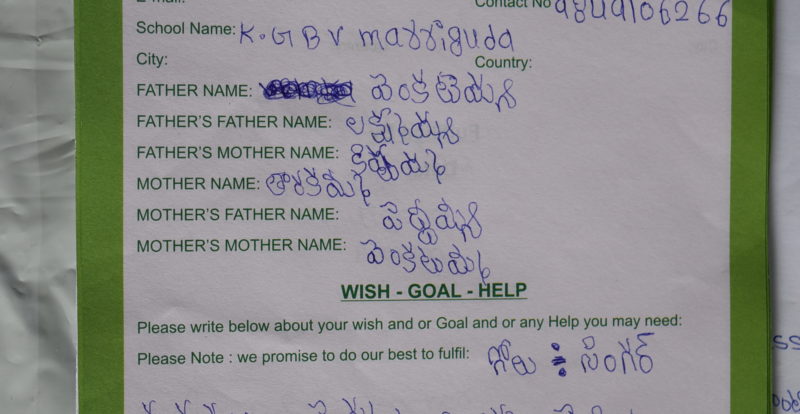 E-mail:
Contact No 9849106266
School Name: K.GBV marriguda
City: Country:
FATHER NAME: వెంకటయ్య
FATHER'S FATHER NAME: లక్ష్మయ్య
FATHER'S MOTHER NAME:
MOTHER NAME: తారకమ్మ
MOTHER'S FATHER NAME: పెద్దయ్య
MOTHER'S MOTHER NAME: వెంకటమ్మ
WISH - GOAL - HELP
Please write below about your wish and or Goal and or any Help you may need:
Please Note : we promise to do our best to fulfil: గోలు : సింగర్